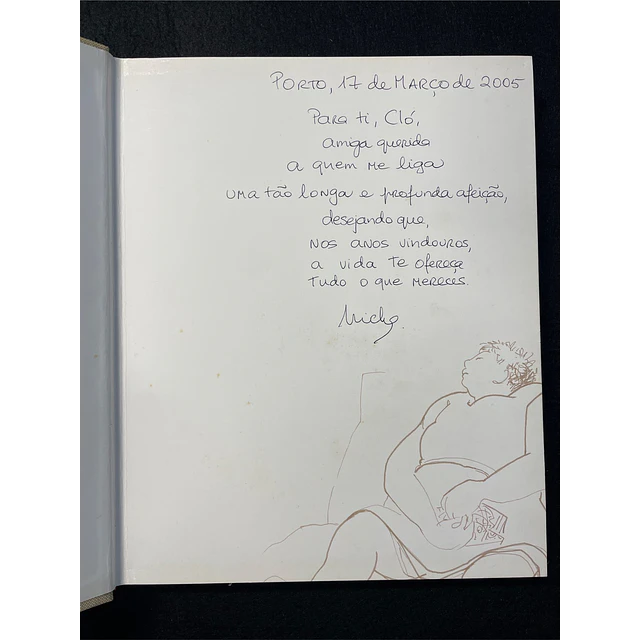 Porto, 17 de Março de 2005
Para ti, Cló,
amiga querida
a quem me liga
uma tão longa e profunda afeição,
desejando que,
nos anos vindouros,
a vida te ofereça
tudo o que mereces.